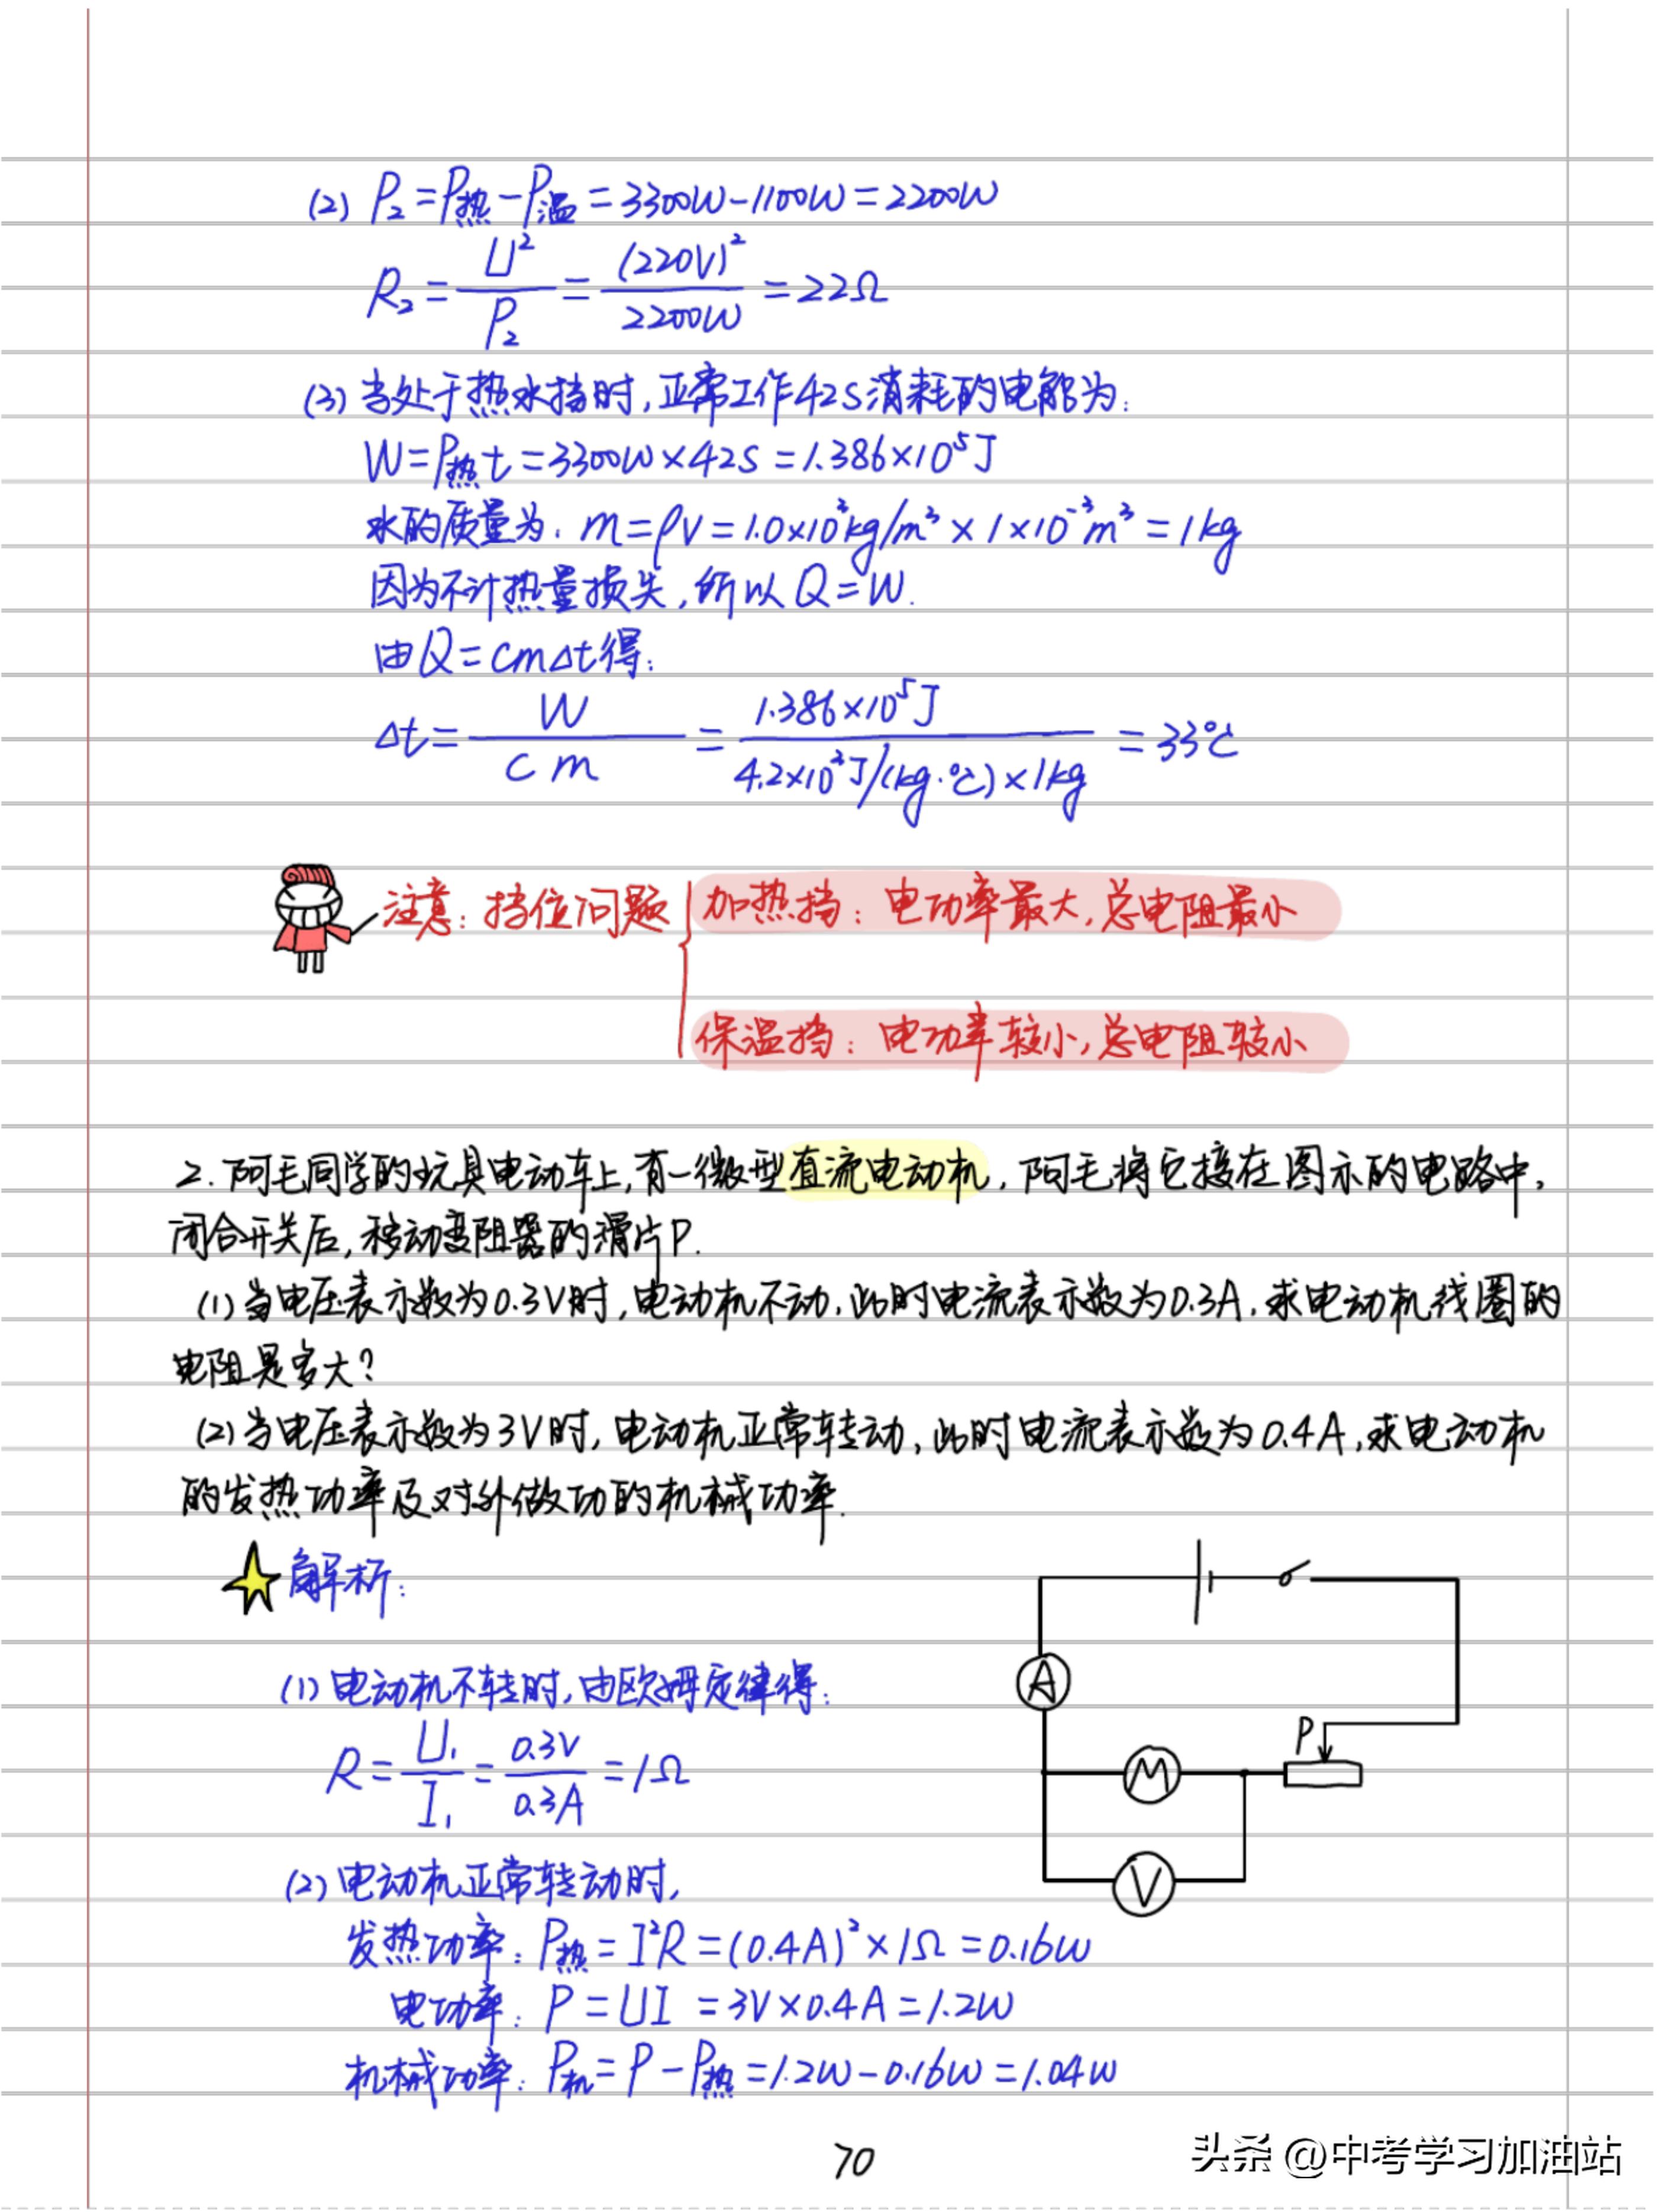 (2) P₂=P热-P温=3300W-1100W=2200W
R₂=U²/P₂=(220V)²/2200W=22Ω
(3) 当处于热水挡时,正常工作42s消耗的电能为:
W=P热t=3300W×42s=1.386×10⁵J
水的质量为: m=ρV=1.0×10³kg/m³×1×10⁻³m³=1kg
因为不计热量损失,所以Q=W.
由Q=cmΔt得:
Δt=W/cm=1.386×10⁵J/4.2×10³J/(kg·℃)×1kg=33℃
注意:挡位问题
加热挡:电功率最大,总电阻最小
保温挡:电功率较小,总电阻较小
2.阿毛同学的玩具电动车上,有一微型直流电动机,阿毛将它接在图示的电路中,
闭合开关后,移动变阻器的滑片P.
(1)当电压表示数为0.3V时,电动机不动,此时电流表示数为0.3A,求电动机线圈的
电阻是多大?
(2)当电压表示数为3V时,电动机正常转动,此时电流表示数为0.4A,求电动机
的发热功率及对外做功的机械功率.
解析:
A
P
M
V
(1)电动机不转时,由欧姆定律得:
R=U₁/I₁=0.3V/0.3A=1Ω
(2)电动机正常转动时,
发热功率:P热=I²R=(0.4A)²×1Ω=0.16W
电功率:P=UI=3V×0.4A=1.2W
机械功率:P机=P-P热=1.2W-0.16W=1.04W
70
头条@中考学习加油站